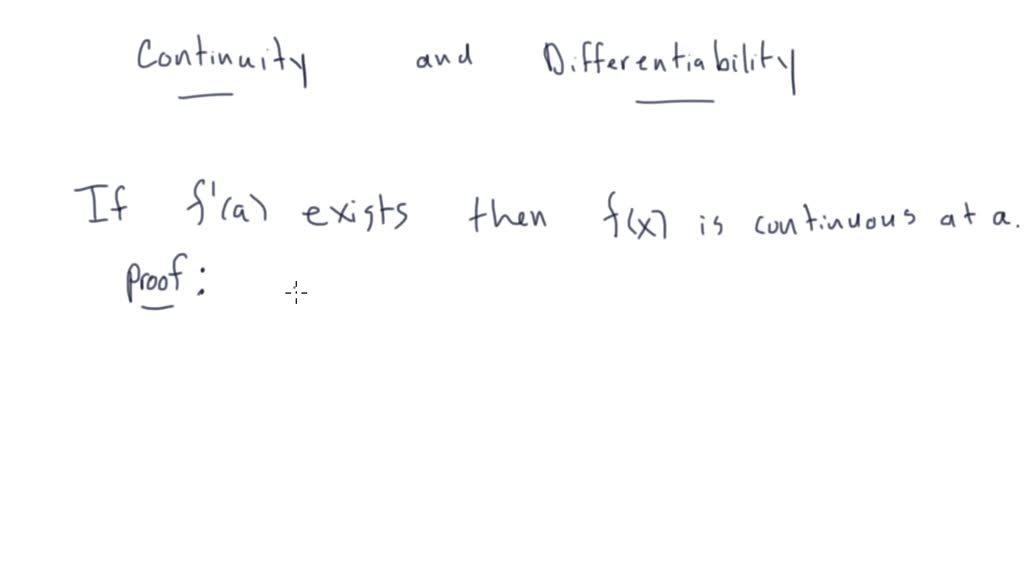 Continuity and Differentiability
If f'(a) exists then f(x) is continuous at a.
Proof: